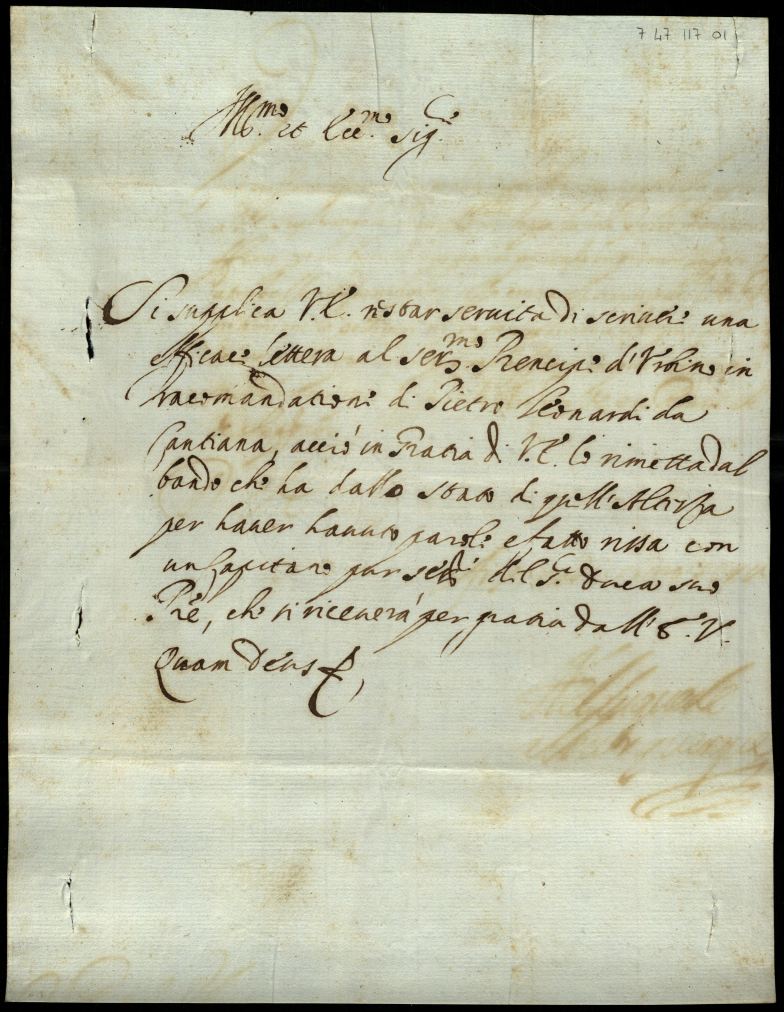 7 47 117 01
Ill.mo et Ecc.mo sig.re
Si supplica V.E. restar servita di scrivere una
efficace lettera al ser.mo Prencipe d'Urbino in
racomandatione di Pietro Leonardi da
Cantiana, acciò in gratia di V.E. lo rimetta dal
bando che ha dallo stato di quell'Altezza
per haver havuto parole e fatto rissa con
un Capitano pur sudd.o del S.r Duca suo
Pre, che si riceverà per gratia dall'E.V.
Quam Deus